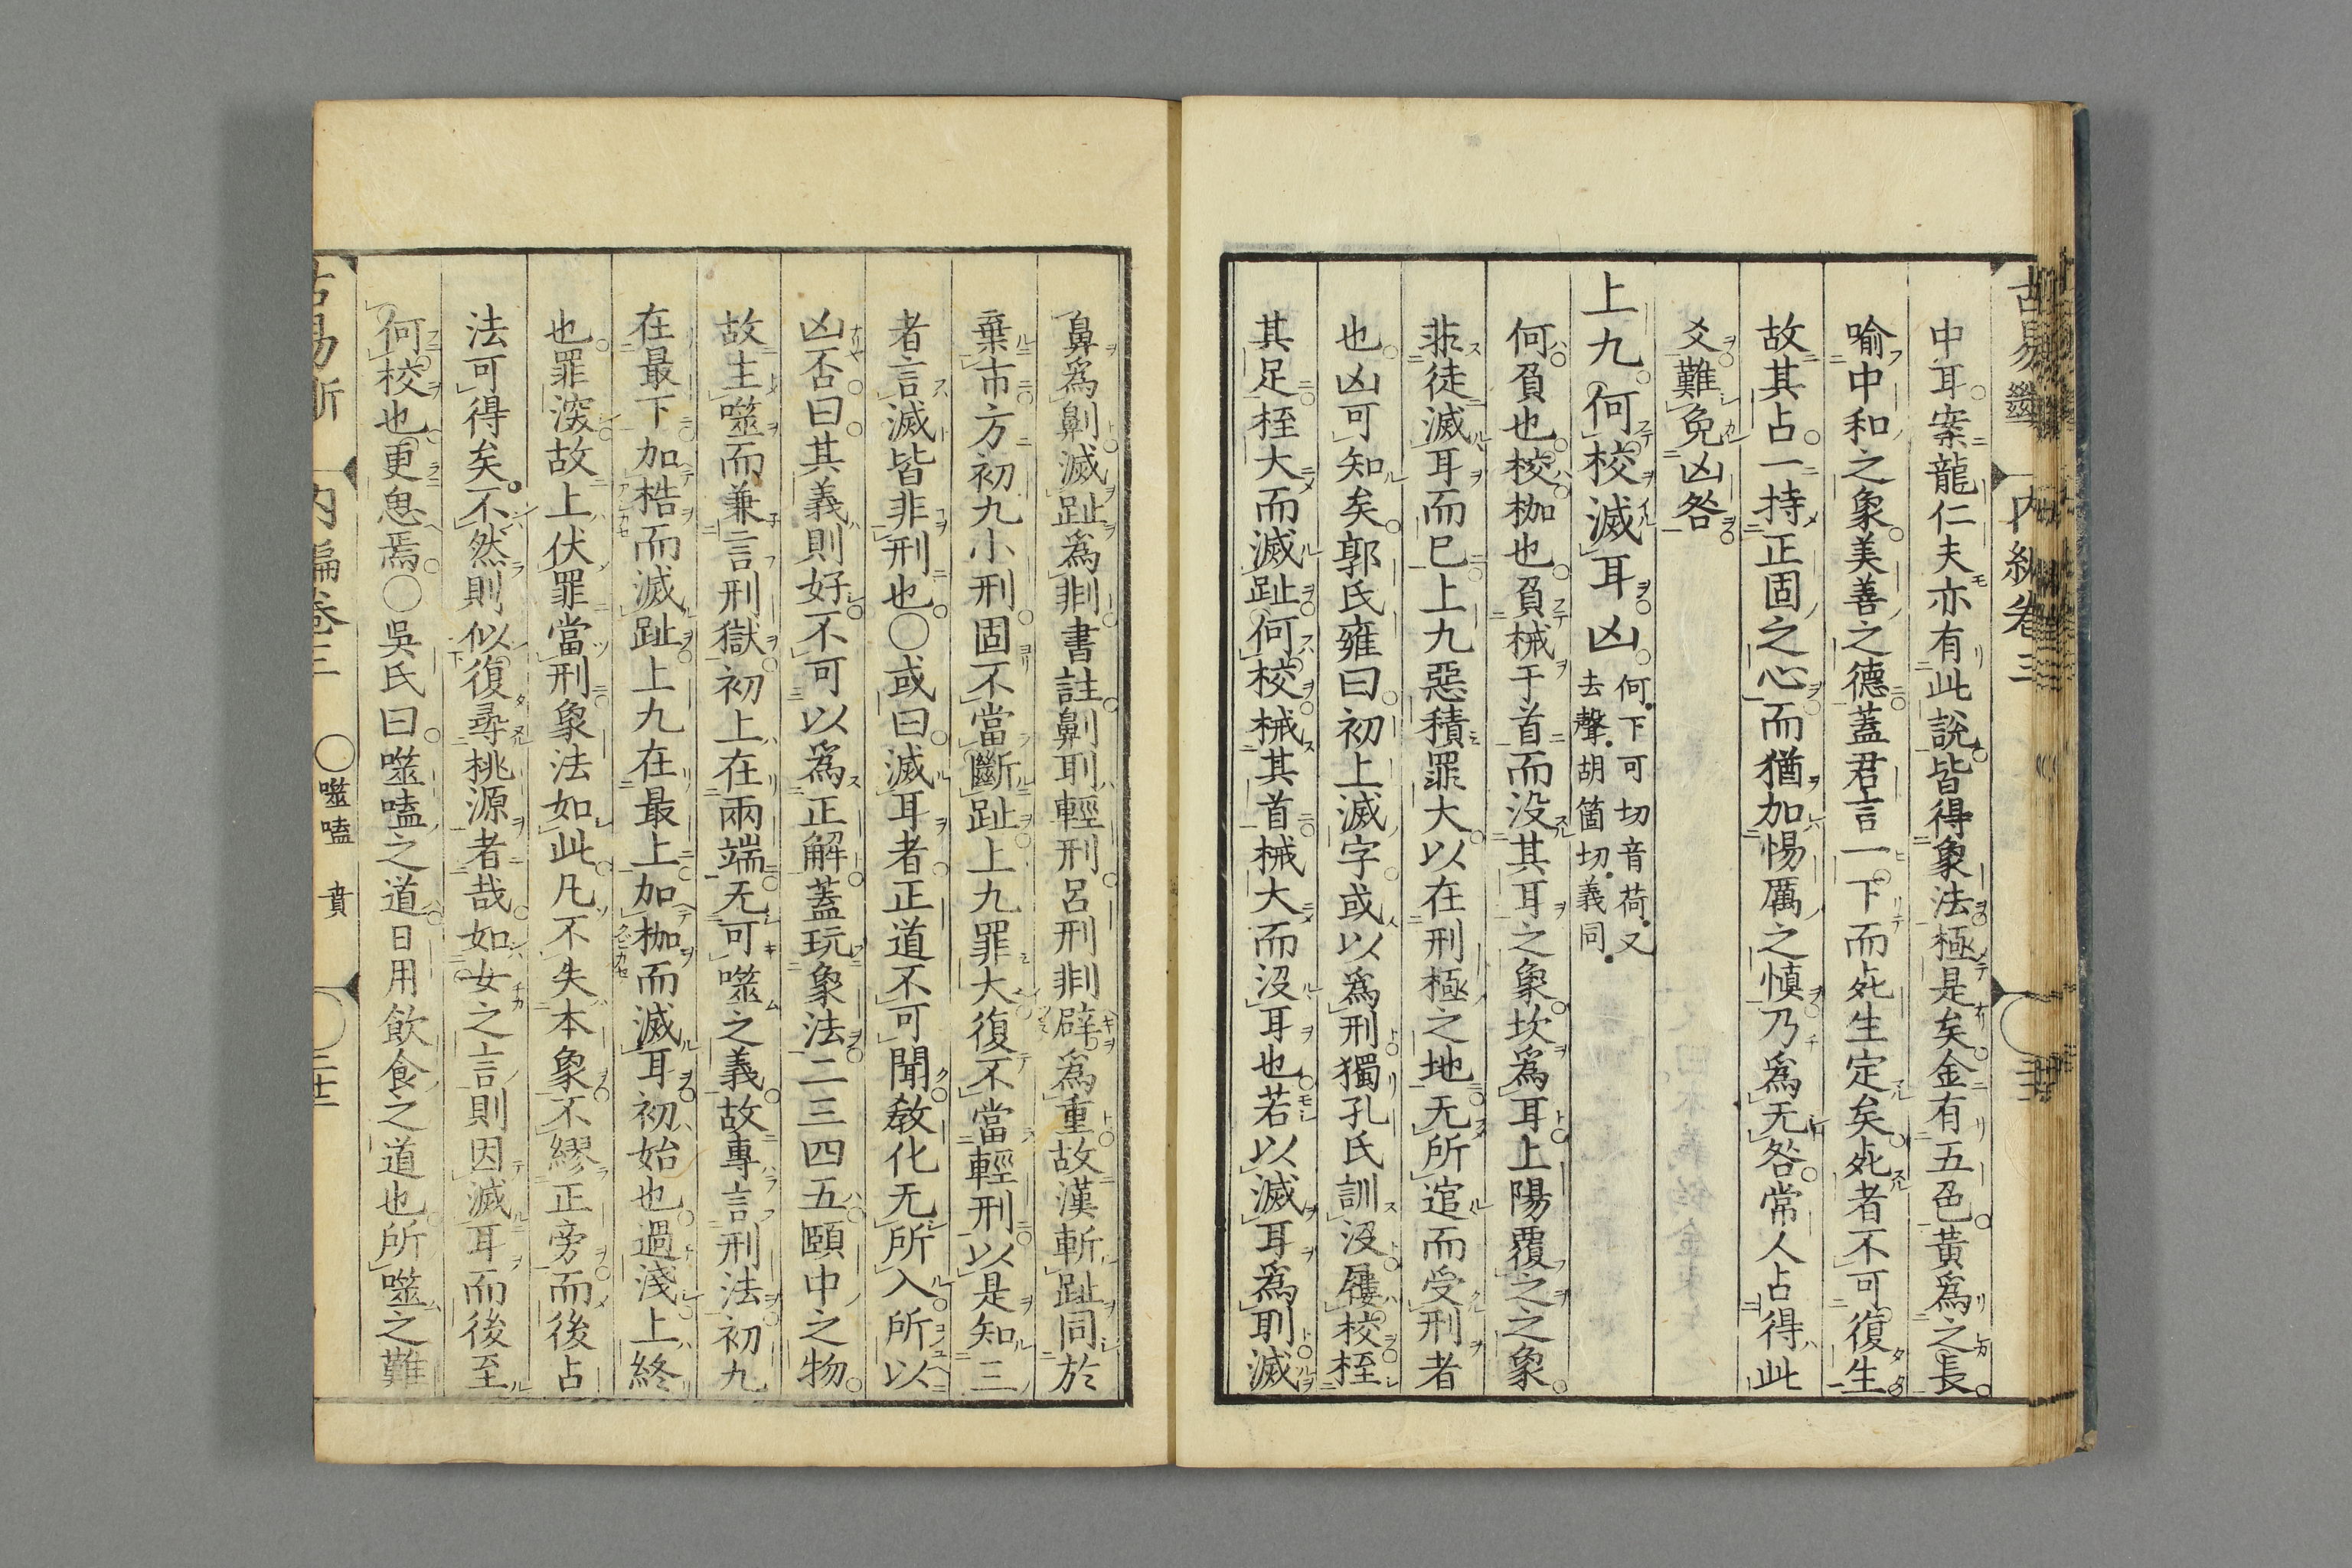 古易斷 内編卷三
中耳案龍仁夫亦有此說皆得象法極是矣金有五色黃爲之長
喻中和之象美善之德蓋君言一下而死生定矣死者不可復生
故其占一持正固之心而猶加惕厲之慎乃爲无咎常人占得此
爻難免凶咎
上九何校滅耳凶何下可切音荷又
去聲胡箇切義同
何負也校枷也負械于首而没其耳之象坎爲耳上陽覆之之象
非徒滅耳而已上九惡積罪大以在刑極之地无所逭而受刑者
也凶可知矣郭氏雍曰初上滅字或以爲刑獨孔氏訓没屨校桎
其足桎大而滅趾何校械其首械大而没耳也若以滅耳爲刵滅
鼻爲劓滅趾爲剕書註劓刵輕刑呂刑剕辟爲重故漢斬趾同於
棄市方初九小刑固不當斷趾上九罪大復不當輕刑以是知三
者言滅皆非刑也○或曰滅耳者正道不可聞教化无所入所以
凶否曰其義則好不可以爲正解蓋玩象法二三四五頤中之物
故主噬而兼言刑獄初上在兩端无可噬之義故專言刑法初九
在最下加梏而滅趾上九在最上加枷而滅耳初始也過淺上終
也罪深故上伏罪當刑象法如此凡不失本象不繆正旁而後占
法可得矣不然則似復尋桃源者哉如女之言則因滅耳而後至
何校也更思焉○吳氏曰噬嗑之道日用飲食之道也所噬之難
古易斷 内編卷三 ○噬嗑 賁